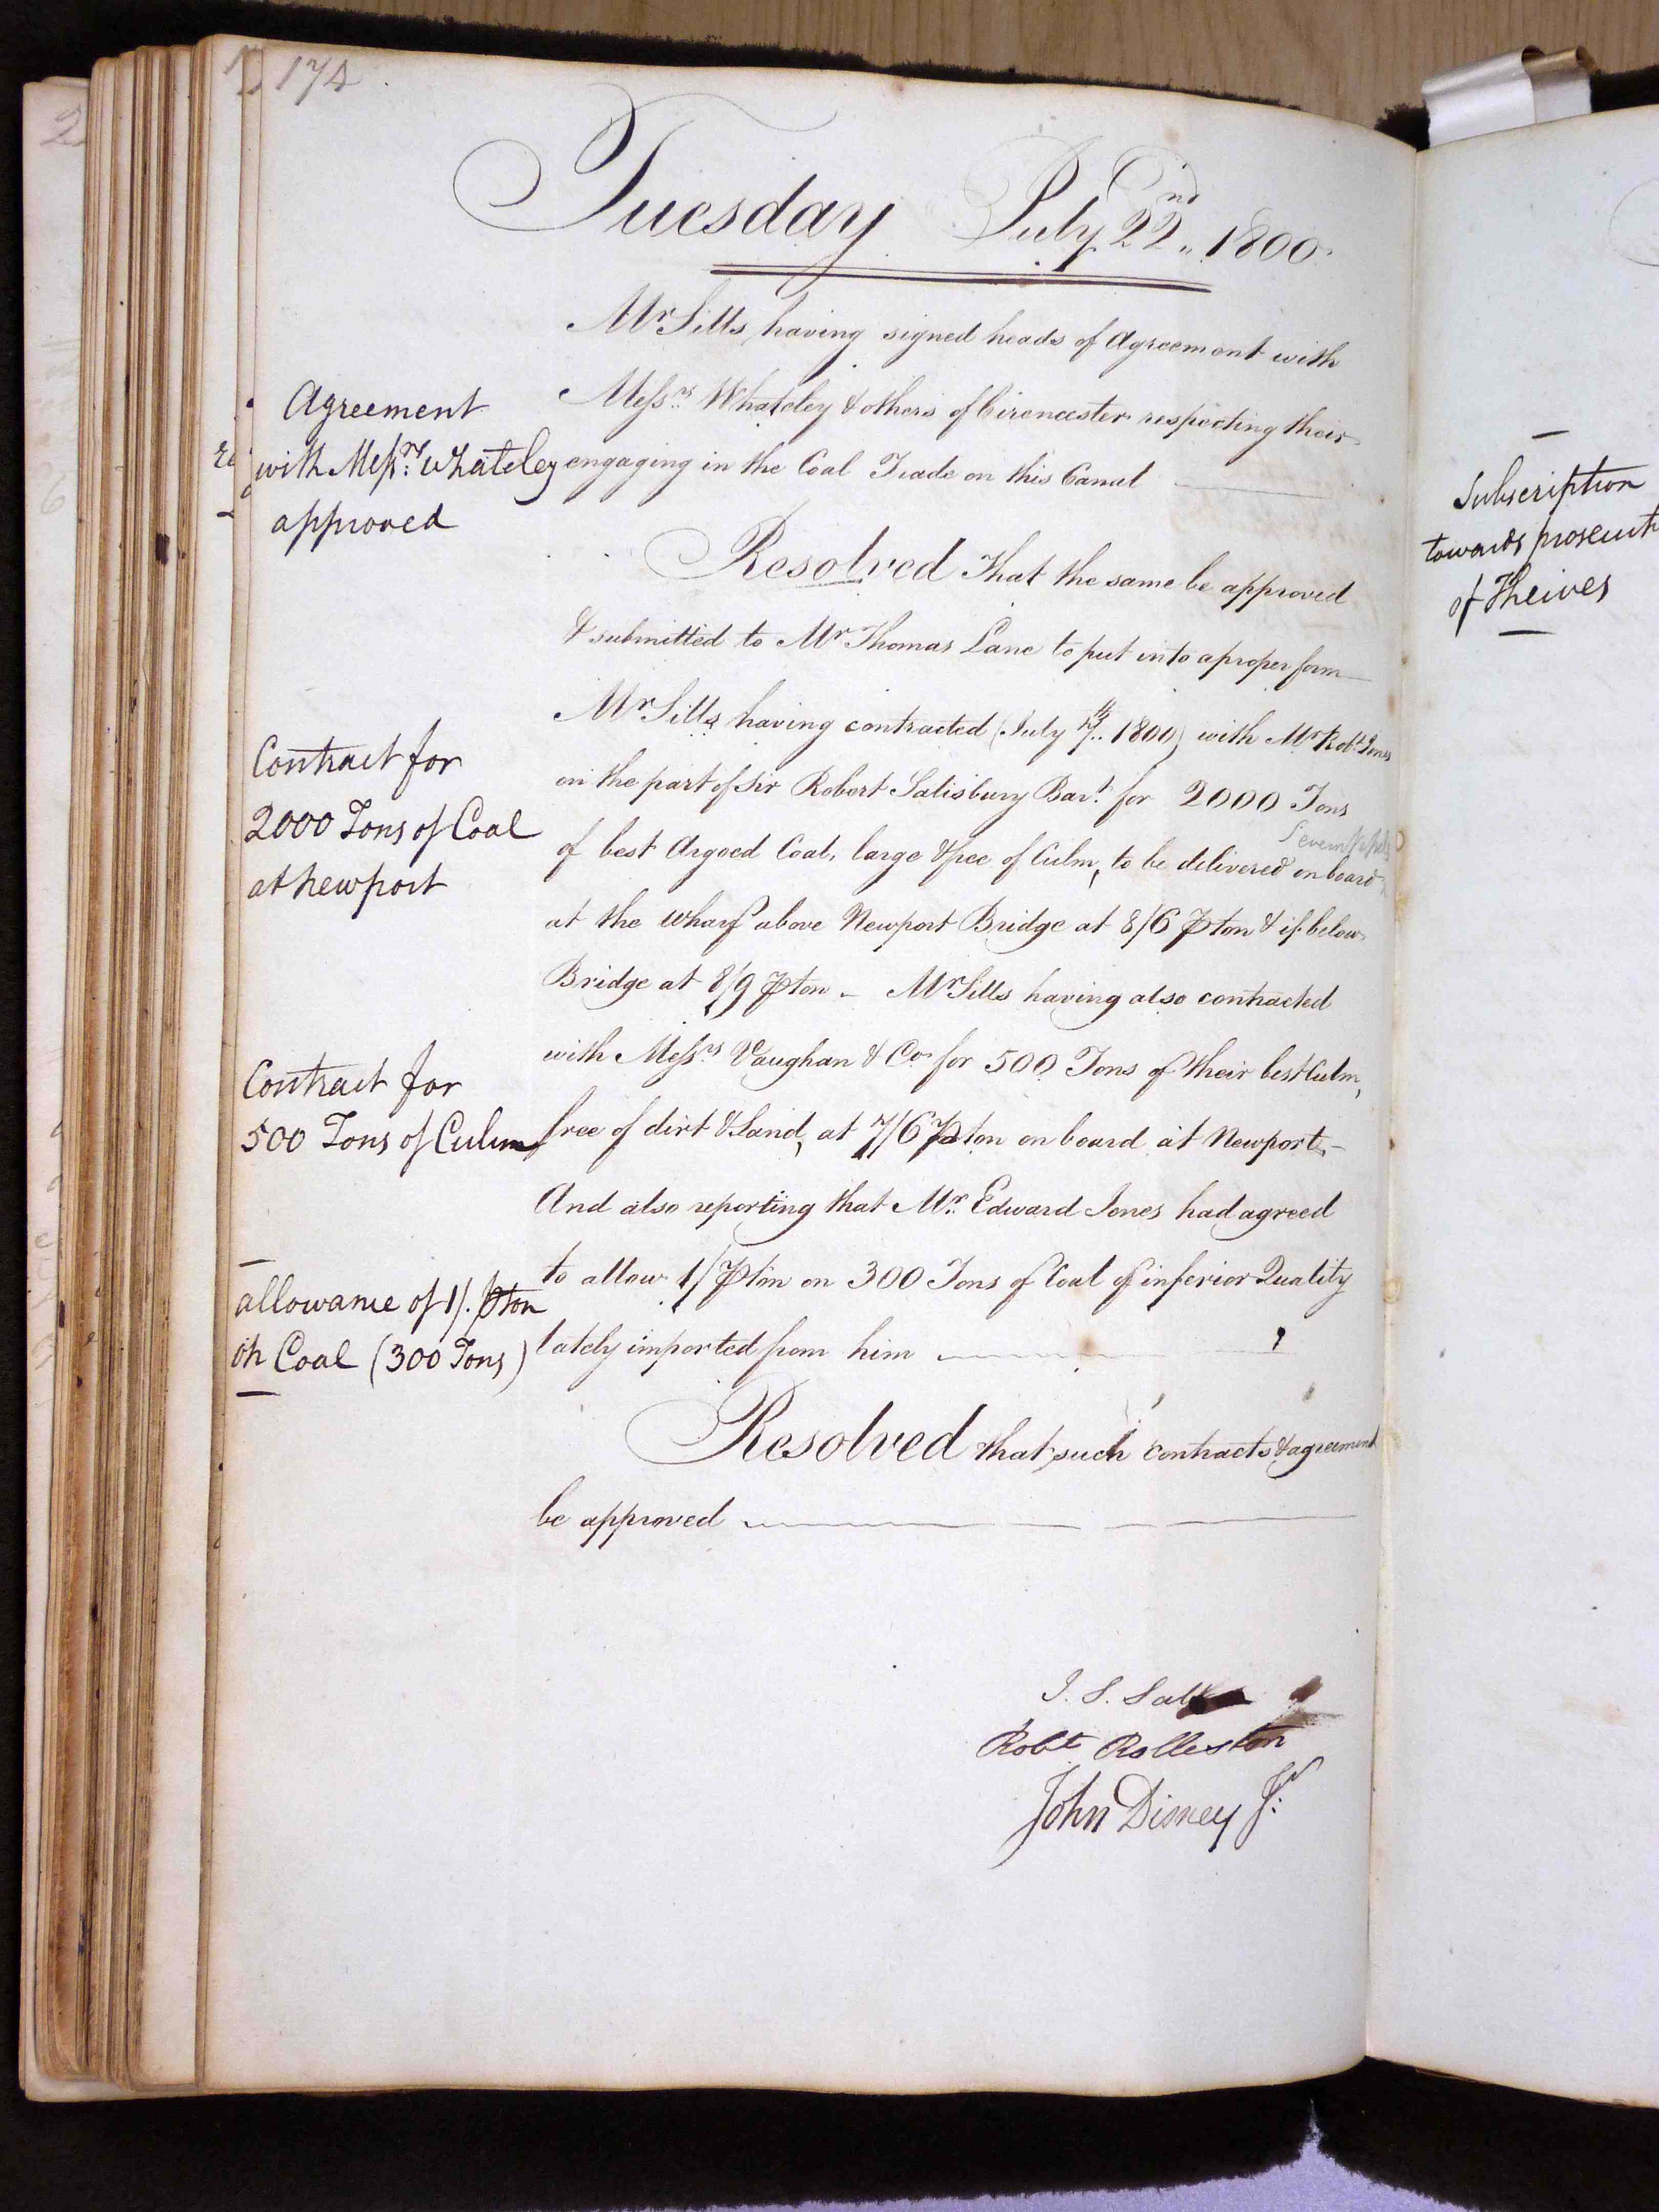 174
Tuesday July 22nd 1800
Mr Sills having signed heads of Agreement with
Messrs Whateley & others of Cirencester respecting their
engaging in the Coal Trade on this Canal
Agreement
with Messrs Whateley
approved
Resolved That the same be approved
& submitted to Mr Thomas Lane to put into a proper form
Mr Sills having contracted (July 17th 1800) with Mr Robt Jones
on the part of Sir Robert Salisbury Bart. for 2000 Tons
of best Argoed Coal, large & free of Culm, to be delivered on board
at the Wharf above Newport Bridge at 8/6 ⅌ ton & if below
Bridge at 8/9 ⅌ ton - Mr Sills having also contracted
Contract for
2000 Tons of Coal
at Newport
with Messrs Vaughan & Co for 500 Tons of their best Culm,
free of dirt & Sand, at 7/6 ⅌ ton on board at Newport, -
Contract for
500 Tons of Culm
And also reporting that Mr. Edward Jones had agreed
to allow 1/ ⅌ ton on 300 Tons of Coal of inferior Quality
lately imported from him
allowance of 1/. ⅌ ton
on Coal (300 Tons)
Resolved that such contracts & agreement
be approved
J. S.
Robt Rolleston
John Disney Jr.
Subscription
towards
of Theives